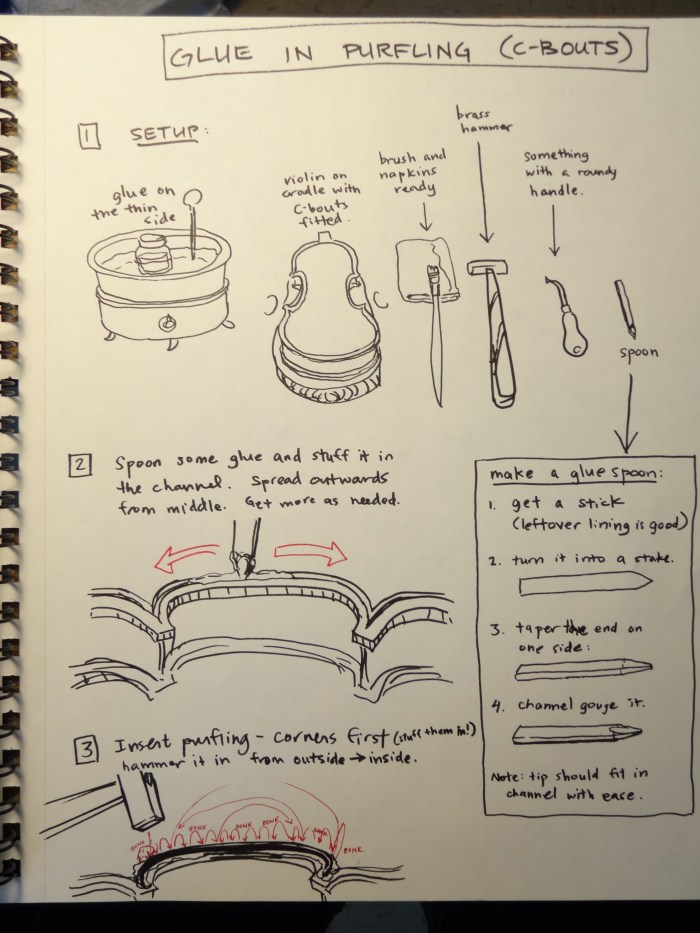 GLUE IN PURFLING (C-BOUTS)
1 SETUP:
glue on
the thin
side
violin on
cradle with
C-bouts
fitted.
brush and
napkins
ready
brass
hammer
something
with a roundy
handle.
spoon
2 Spoon some glue and stuff it in
the channel. Spread outwards
from middle. Get more as needed.
make a glue spoon:
1. get a stick
(leftover lining is good)
2. turn it into a stake.
3. taper the end on
one side:
4. channel gouge it.
Note: tip should fit in
channel with ease.
3 Insert purfling - corners first (stuff them in!)
hammer it in from outside → inside.
BONK
BONK
BONK
BONK
BONK